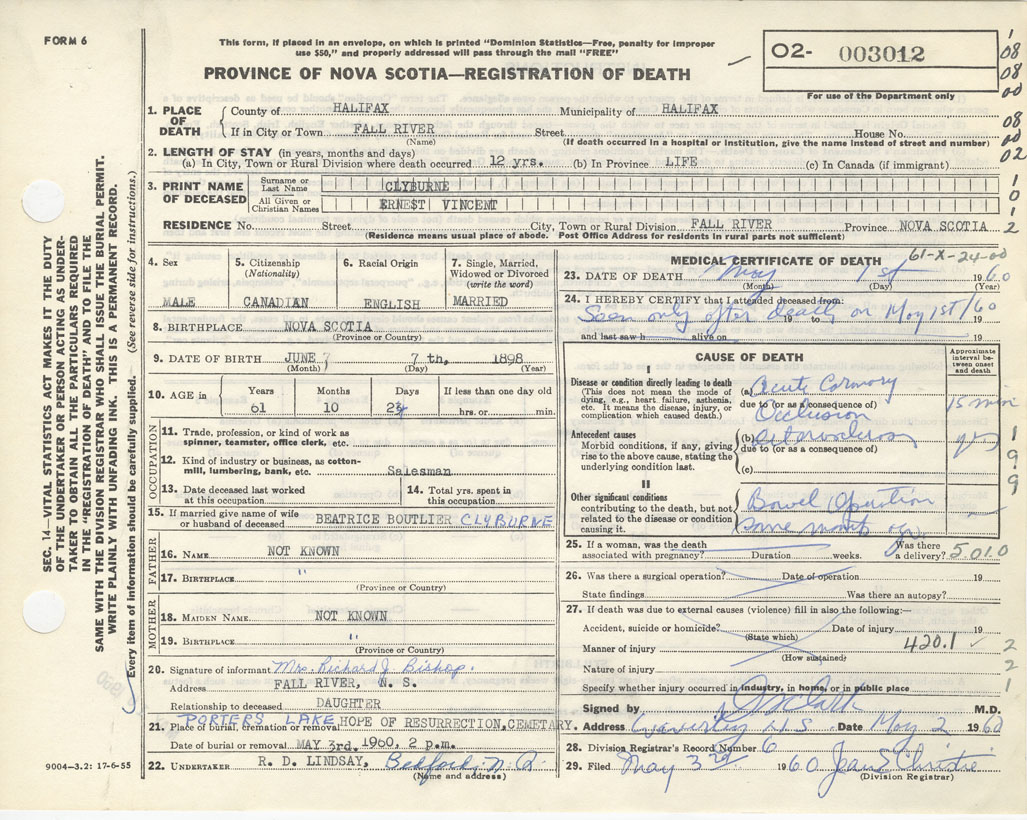 FORM 6
This form, if placed in an envelope, on which is printed "Dominion Statistics—Free, penalty for improper
use $50," and properly addressed will pass through the mail "FREE"
PROVINCE OF NOVA SCOTIA—REGISTRATION OF DEATH
O2- 003012
For use of the Department only
1
08
08
00
08
00
02
1
0
1
2
1. PLACE OF DEATH
County of HALIFAX Municipality of HALIFAX
If in City or Town FALL RIVER Street House No.
(Name) (If death occurred in a hospital or Institution, give the name instead of street and number)
2. LENGTH OF STAY (in years, months and days)
(a) In City, Town or Rural Division where death occurred 12 yrs. (b) In Province LIFE (c) In Canada (if immigrant)
3. PRINT NAME OF DECEASED
Surname or Last Name CLYBURNE
All Given or Christian Names ERNEST VINCENT
RESIDENCE No. Street City, Town or Rural Division FALL RIVER Province NOVA SCOTIA
(Residence means usual place of abode. Post Office Address for residents in rural parts not sufficient)
4. Sex MALE
5. Citizenship (Nationality) CANADIAN
6. Racial Origin ENGLISH
7. Single, Married, Widowed or Divorced (write the word) MARRIED
8. BIRTHPLACE NOVA SCOTIA
(Province or Country)
9. DATE OF BIRTH JUNE 7 7 th, 1898
(Month) (Day) (Year)
10. AGE in Years 61 Months 10 Days If less than one day old hrs. or min.
OCCUPATION
11. Trade, profession, or kind of work as
spinner, teamster, office clerk, etc.
12. Kind of industry or business, as cotton-
mill, lumbering, bank, etc. Salesman
13. Date deceased last worked at this occupation
14. Total yrs. spent in this occupation
15. If married give name of wife
or husband of deceased BEATRICE BOUTLIER CLYBURNE
FATHER
16. NAME NOT KNOWN
17. BIRTHPLACE "
(Province or Country)
MOTHER
18. MAIDEN NAME NOT KNOWN
19. BIRTHPLACE "
(Province or Country)
20. Signature of informant Mrs. Richard J. Bishop.
Address FALL RIVER, N. S.
Relationship to deceased DAUGHTER
PORTERS LAKE
21. Place of burial, cremation or removal HOPE OF RESURRECTION, CEMETARY.
Date of burial or removal MAY 3rd. 1960, 2 p.m.
22. UNDERTAKER R. D. LINDSAY, Bedford, N. S.
(Name and address)
61-X-24-00
MEDICAL CERTIFICATE OF DEATH
23. DATE OF DEATH May 1st 1960
(Month) (Day) (Year)
24. I HEREBY CERTIFY that I attended deceased from:
Seen only after death on May 1st/60
19 to 19
and last saw h alive on 19
CAUSE OF DEATH
Approximate interval between onset and death
I
Disease or condition directly leading to death
(This does not mean the mode of
dying, e.g., heart failure, asthenia,
etc. It means the disease, injury, or
complication which caused death.)
(a) Acute Coronary
due to (or as a consequence of)
Occlusion 15 min
Antecedent causes
Morbid conditions, if any, giving
rise to the above cause, stating the
underlying condition last.
(b)
due to (or as a consequence of)
(c)
1
9
9
II
Other significant conditions
contributing to the death, but not
related to the disease or condition
causing it.
Bowel Operation
some months ago
25. If a woman, was the death
associated with pregnancy? Duration weeks. Was there a delivery? 5.010
26. Was there a surgical operation? Date of operation 19
State findings Was there an autopsy?
27. If death was due to external causes (violence) fill in also the following:—
Accident, suicide or homicide? Date of injury 19
(State which)
Manner of injury 420.1
(How sustained)
Nature of injury
Specify whether injury occurred in industry, in home, or in public place
2
2
1
Signed by Clark M.D.
Address Waverley N.S. Date May 2 1960
28. Division Registrar's Record Number 6
29. Filed May 3rd 1960 Jean S. Christie
(Division Registrar)
SEC. 14—VITAL STATISTICS ACT MAKES IT THE DUTY
OF THE UNDERTAKER OR PERSON ACTING AS UNDER-
TAKER TO OBTAIN ALL THE PARTICULARS REQUIRED
IN THE "REGISTRATION OF DEATH" AND TO FILE THE
SAME WITH THE DIVISION REGISTRAR WHO SHALL ISSUE THE BURIAL PERMIT.
WRITE PLAINLY WITH UNFADING INK. THIS IS A PERMANENT RECORD.
Every item of information should be carefully supplied. (See reverse side for instructions.)
9004—3.2: 17-6-55